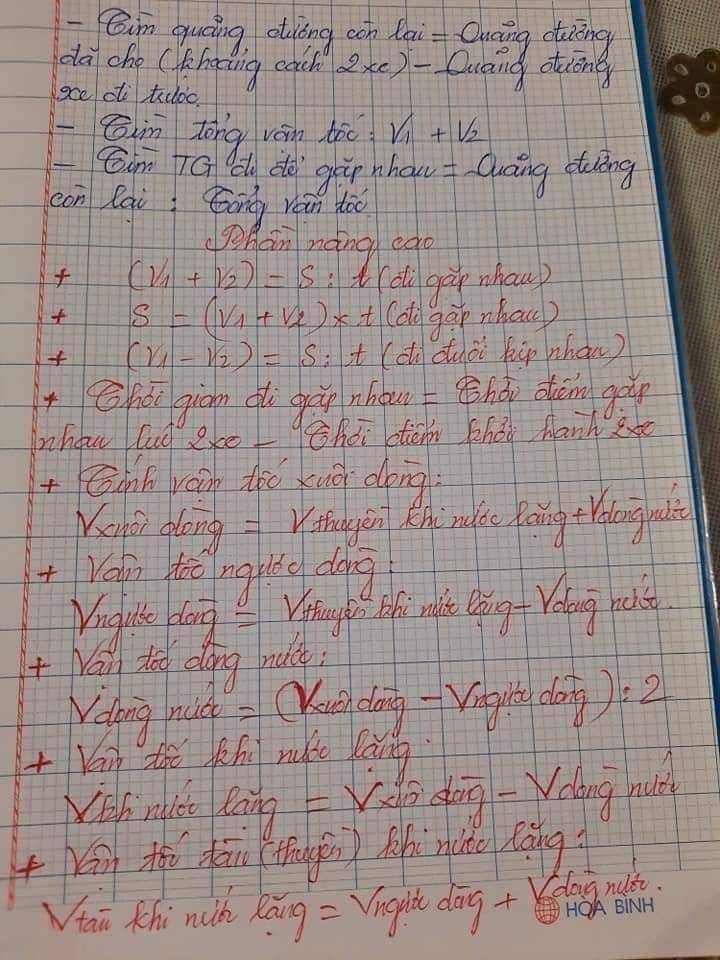 - Tìm quảng đường còn lại = Quảng đường
đã cho (khoảng cách 2 xe) - Quảng đường
xe đi trước.
- Tìm tổng vận tốc: V1 + V2
- Tìm TG đi để gặp nhau = Quảng đường
còn lại : Tổng vận tốc
Phần nâng cao
+ (V1 + V2) = S : t (đi gặp nhau)
+ S = (V1 + V2) x t (đi gặp nhau)
+ (V1 - V2) = S : t (đi đuổi kịp nhau)
+ Thời gian đi gặp nhau = Thời điểm gặp
nhau lúc 2 xe - Thời điểm khởi hành 2 xe
+ Tính vận tốc xuôi dòng:
Vxuôi dòng = Vthuyền khi nước lặng + Vdòng nước
+ Vận tốc ngược dòng:
Vngược dòng = Vthuyền khi nước lặng - Vdòng nước.
+ Vận tốc dòng nước:
Vdòng nước = (Vxuôi dòng - Vngược dòng) : 2
+ Vận tốc khi nước lặng:
Vkhi nước lặng = Vxuôi dòng - Vdòng nước
+ Vận tốc tàu (thuyền) khi nước lặng:
Vtàu khi nước lặng = Vngược dòng + Vdòng nước.
HÒA BÌNH